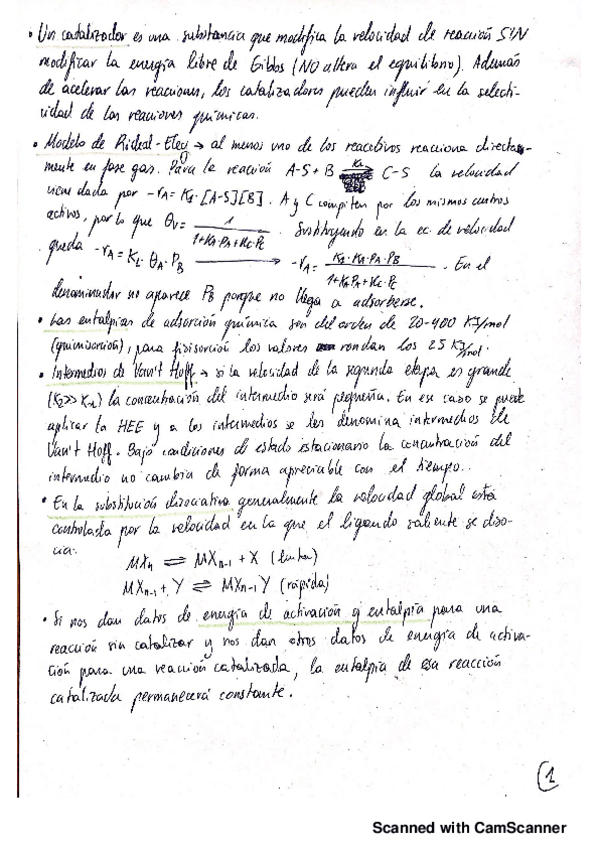 • Un catalizador es una substancia que modifica la velocidad de reacción SIN
modificar la energía libre de Gibbs (NO altera el equilibrio). Además
de acelerar las reacciones, los catalizadores pueden influir en la selecti-
vidad de las reacciones químicas.
• Modelo de Rideal-Eley → al menos uno de los reactivos reacciona directa-
mente en fase gas. Para la reacción A-S + B ⇌ C-S la velocidad
viene dada por -rA = K1·[A-S][B]. A y C compiten por los mismos centros
activos, por lo que θv = 1 / 1+KA·PA+KC·PC. Sustituyendo en la ec. de velocidad
queda -rA = K1·θA·PB → -rA = K1·KA·PA·PB / 1+KAPA+KC·PC. En el
denominador no aparece PB porque no llega a adsorberse.
• Las entalpías de adsorción química son del orden de 20-400 KJ/mol
(quimisorción), para fisisorción los valores rondan los 25 KJ/mol.
• Intermedios de Van't Hoff → si la velocidad de la segunda etapa es grande
(K2>>K-1) la concentración del intermedio será pequeña. En ese caso se puede
aplicar la HEE y a los intermedios se les denomina intermedios de
Van't Hoff. Bajo condiciones de estado estacionario la concentración del
intermedio no cambia de forma apreciable con el tiempo.
• En la substitución disociativa generalmente la velocidad global está
controlada por la velocidad en la que el ligando saliente se diso-
cia:
MXn ⇌ MXn-1 + X (lenta)
MXn-1 + Y ⇌ MXn-1Y (rápida)
• Si nos dan datos de energía de activación y entalpía para una
reacción sin catalizar y nos dan otros datos de energía de activa-
ción para una reacción catalizada, la entalpía de esa reacción
catalizada permanecerá constante.
1
Scanned with CamScanner